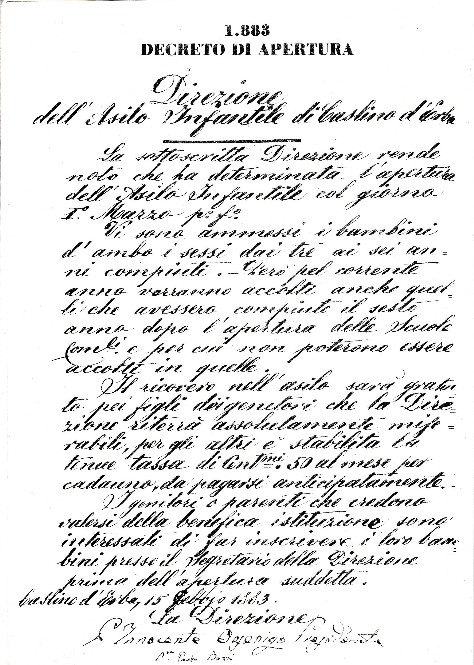 1.883
DECRETO DI APERTURA
Direzione
dell'Asilo Infantile di Caslino d'Erba
La sottoscritta Direzione rende
noto che ha determinata l'apertura
dell'Asilo Infantile col giorno
1º Marzo pº fº
Vi sono ammessi i bambini
d'ambo i sessi dai tre ai sei an-
ni compiuti. - Però pel corrente
anno verranno accolti anche quel-
li che avessero compiuto il sesto
anno dopo l'apertura delle Scuole
Comli. e per cui non poterono essere
accolti in quelle.
Il ricovero nell'asilo sarà gratui-
to pei figli dei genitori che la Dire-
zione riterrà assolutamente mise-
rabili, per gli altri è stabilita la
tenue tassa di Centmi. 50 al mese per
cadauno, da pagarsi anticipatamente.
I genitori o parenti che credono
valersi della benefica istituzione sono
interessati di far inscrivere i loro bam-
bini presso il Segretario della Direzione
prima dell'apertura suddetta.
Caslino d'Erba, 15 Febbrajo 1883.
La Direzione
Innocente